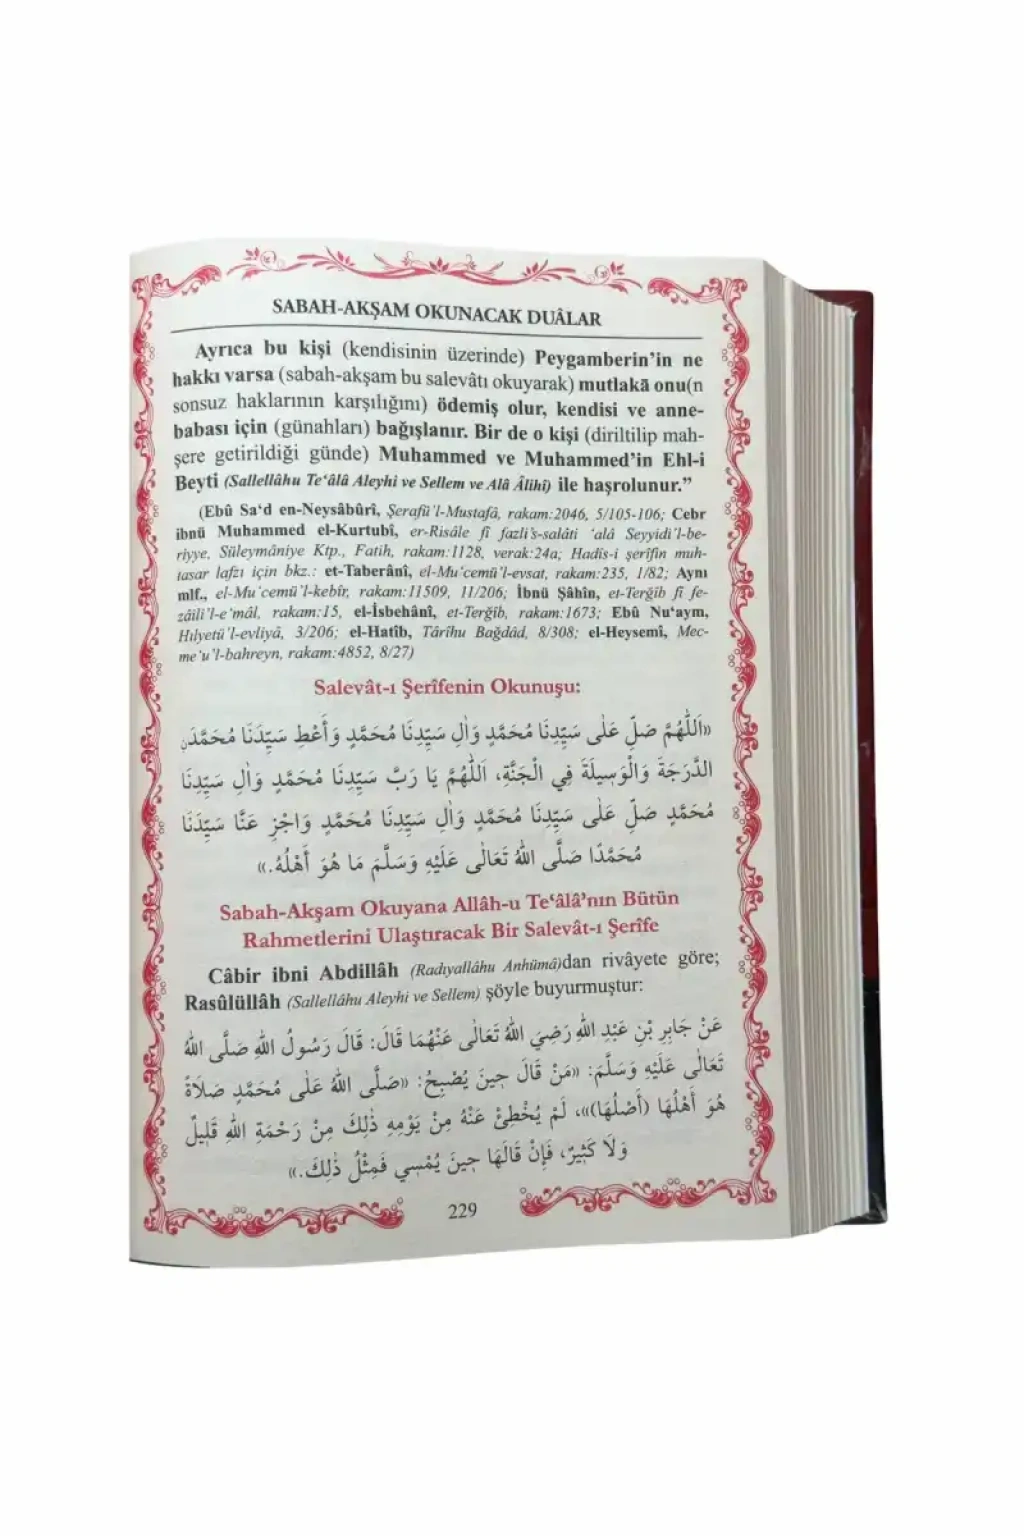 SABAH-AKŞAM OKUNACAK DUÂLAR
Ayrıca bu kişi (kendisinin üzerinde) Peygamberin'in ne
hakkı varsa (sabah-akşam bu salevâtı okuyarak) mutlakā onu(n
sonsuz haklarının karşılığını) ödemiş olur, kendisi ve anne-
babası için (günahları) bağışlanır. Bir de o kişi (diriltilip mah-
şere getirildiği günde) Muhammed ve Muhammed'in Ehl-i
Beyti (Sallellâhu Te'âlâ Aleyhi ve Sellem ve Alâ Âlihî) ile haşrolunur."
(Ebû Sa'd en-Neysâbûrî, Şerafü'l-Mustafâ, rakam:2046, 5/105-106; Cebr
ibnü Muhammed el-Kurtubî, er-Risâle fî fazli's-salâti 'alâ Seyyidi'l-be-
riyye, Süleymâniye Ktp., Fatih, rakam:1128, verak:24a; Hadîs-i şerîfin muh-
tasar lafzı için bkz.: et-Taberânî, el-Mu'cemü'l-evsat, rakam:235, 1/82; Aynı
mlf., el-Mu'cemü'l-kebîr, rakam:11509, 11/206; İbnü Şâhîn, et-Terğîb fî fe-
zâili'l-e'mâl, rakam:15, el-İsbehânî, et-Terğîb, rakam:1673; Ebû Nu'aym,
Hılyetü'l-evliyâ, 3/206; el-Hatîb, Târîhu Bağdâd, 8/308; el-Heysemî, Mec-
me'u'l-bahreyn, rakam:4852, 8/27)
Salevât-ı Şerîfenin Okunuşu:
«اَللّٰهُمَّ صَلِّ عَلٰى سَيِّدِنَا مُحَمَّدٍ وَاٰلِ سَيِّدِنَا مُحَمَّدٍ وَأَعْطِ سَيِّدَنَا مُحَمَّدَنِ
الدَّرَجَةَ وَالْوَسِيلَةَ فِي الْجَنَّةِ، اَللّٰهُمَّ يَا رَبَّ سَيِّدِنَا مُحَمَّدٍ وَاٰلِ سَيِّدِنَا
مُحَمَّدٍ صَلِّ عَلٰى سَيِّدِنَا مُحَمَّدٍ وَاٰلِ سَيِّدِنَا مُحَمَّدٍ وَاجْزِ عَنَّا سَيِّدَنَا
مُحَمَّدًا صَلَّى اللّٰهُ تَعَالٰى عَلَيْهِ وَسَلَّمَ مَا هُوَ أَهْلُهُ.»
Sabah-Akşam Okuyana Allâh-u Te'âlâ'nın Bütün
Rahmetlerini Ulaştıracak Bir Salevât-ı Şerîfe
Câbir ibni Abdillâh (Radıyallâhu Anhümâ)dan rivâyete göre;
Rasûlüllâh (Sallellâhu Aleyhi ve Sellem) şöyle buyurmuştur:
عَنْ جَابِرِ بْنِ عَبْدِ اللّٰهِ رَضِيَ اللّٰهُ تَعَالٰى عَنْهُمَا قَالَ: قَالَ رَسُولُ اللّٰهِ صَلَّى اللّٰهُ
تَعَالٰى عَلَيْهِ وَسَلَّمَ: «مَنْ قَالَ حِينَ يُصْبِحُ: «صَلَّى اللّٰهُ عَلٰى مُحَمَّدٍ صَلَاةً
هُوَ أَهْلُهَا (أَصْلُهَا)»، لَمْ يُخْطِئْ عَنْهُ مِنْ يَوْمِهِ ذٰلِكَ مِنْ رَحْمَةِ اللّٰهِ قَلِيلٌ
وَلَا كَثِيرٌ، فَإِنْ قَالَهَا حِينَ يُمْسِي فَمِثْلُ ذٰلِكَ.»
229